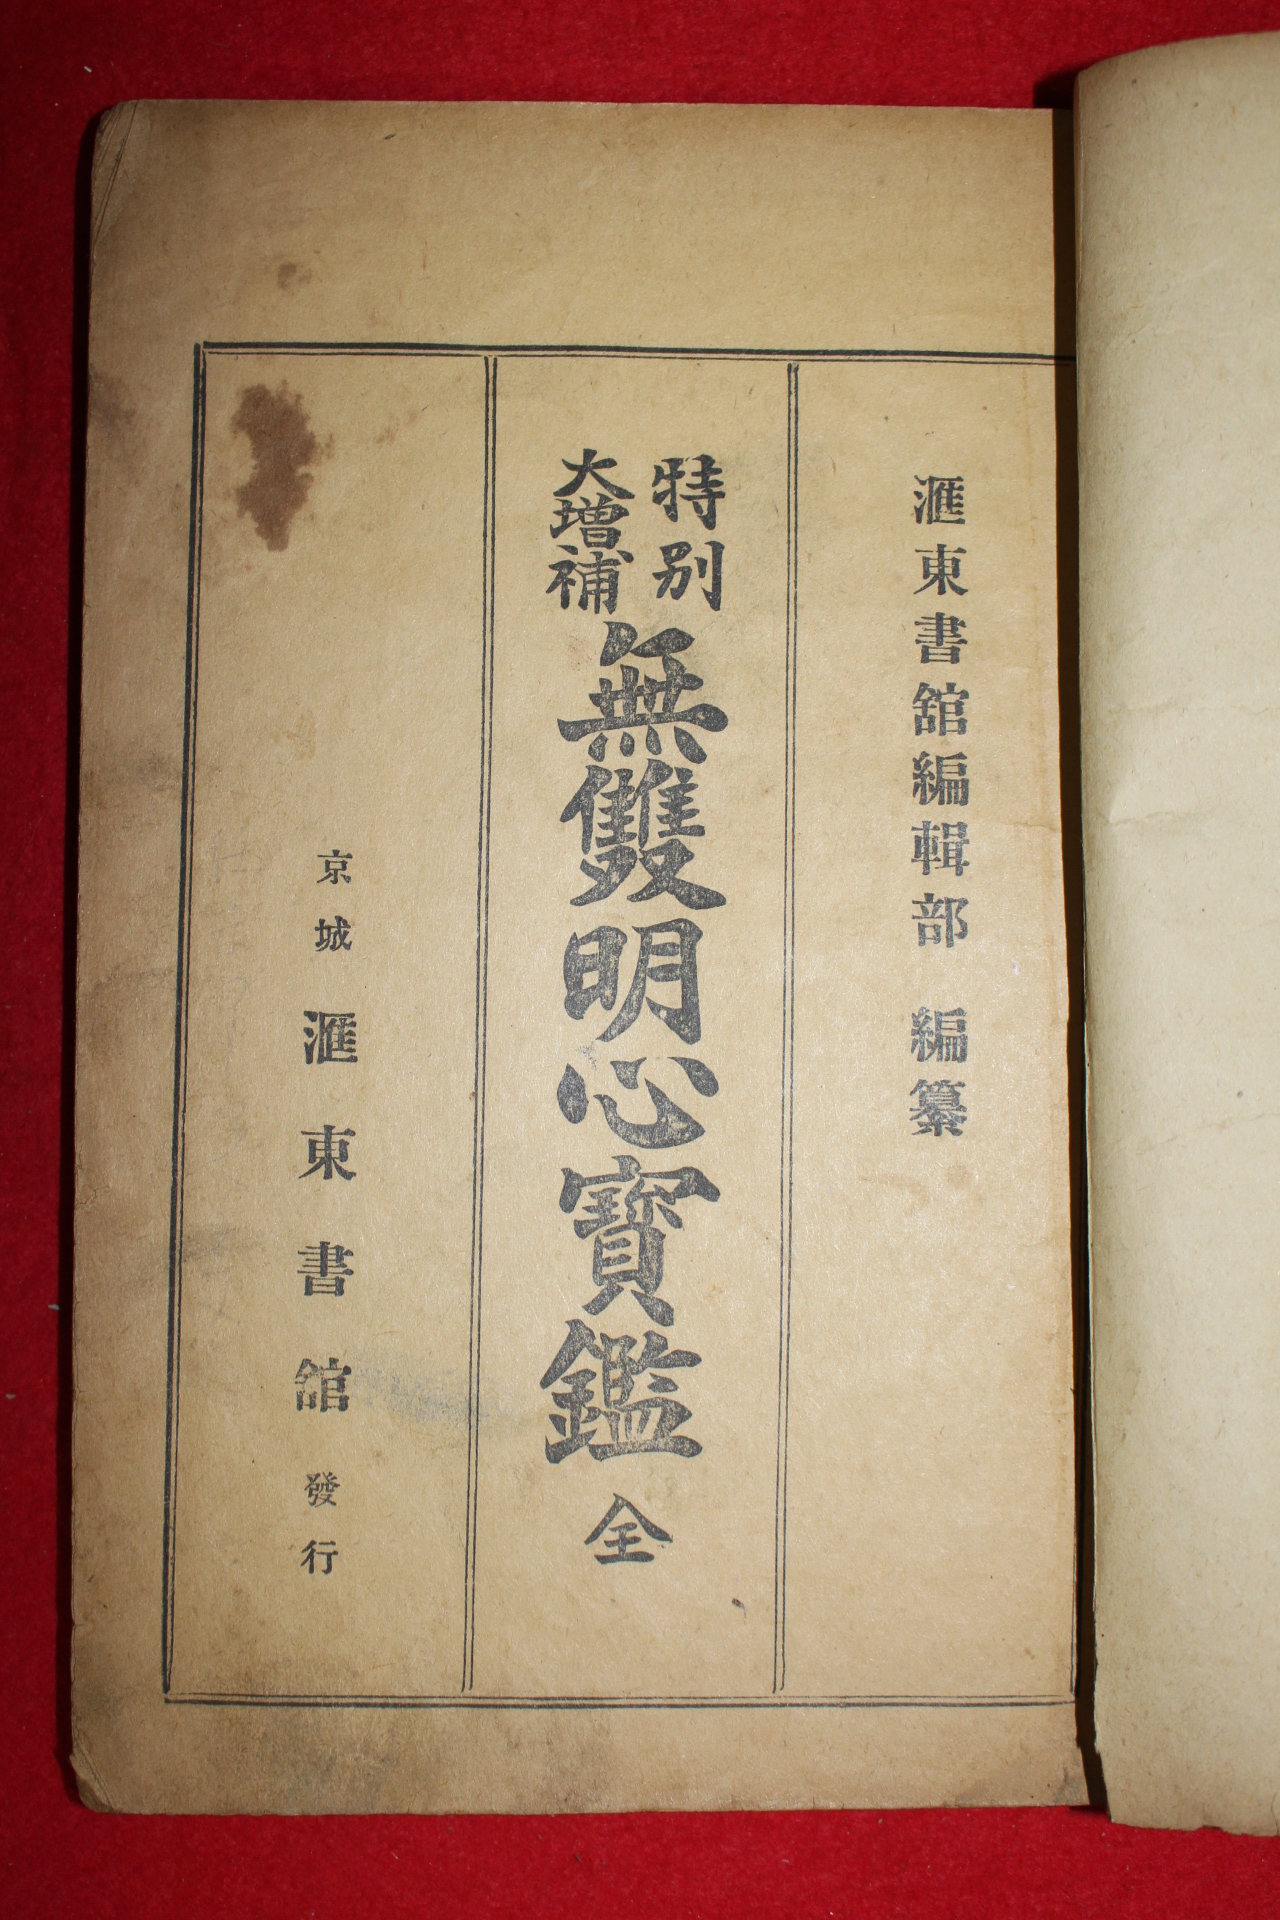 滙東書舘編輯部 編纂
特別
大增補
無雙明心寶鑑 全
京城 滙東書舘 發行